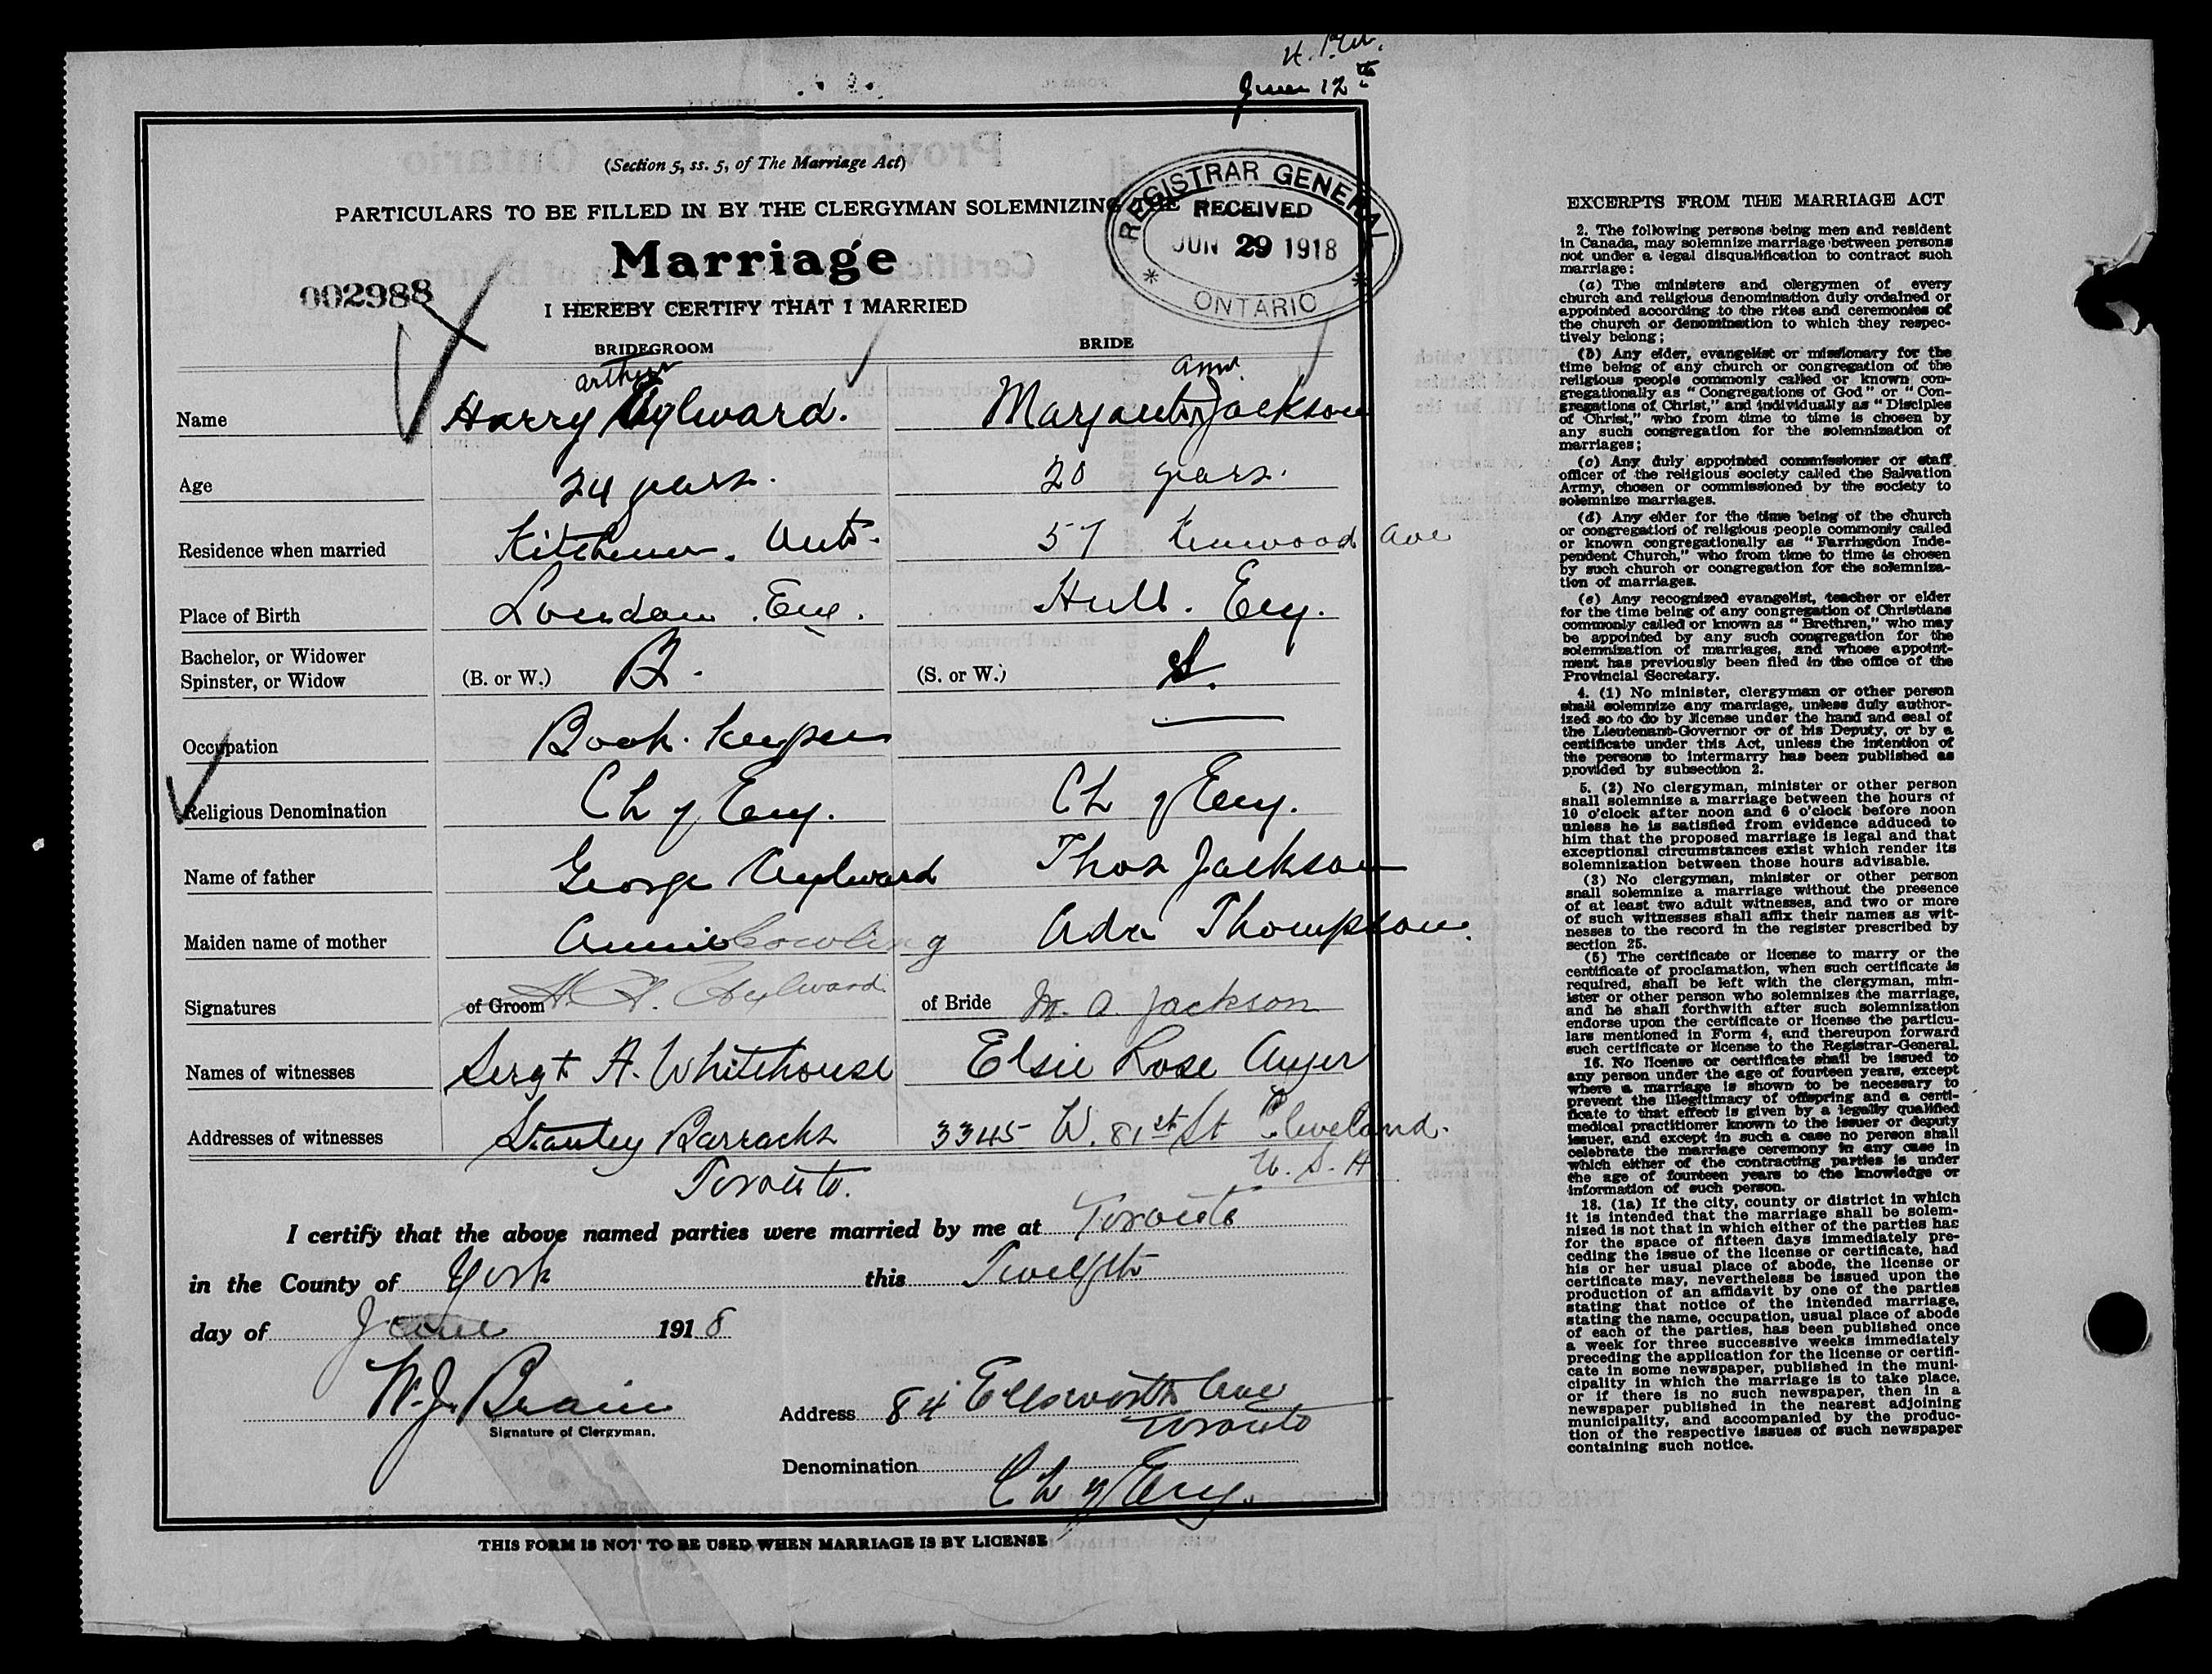 June 12th
(Section 5, ss. 5, of The Marriage Act)
PARTICULARS TO BE FILLED IN BY THE CLERGYMAN SOLEMNIZING THE
REGISTRAR GENERAL
RECEIVED
JUN 29 1918
ONTARIO
Marriage
002988
I HEREBY CERTIFY THAT I MARRIED
BRIDEGROOM BRIDE
arthur ann
Name Harry Aylward. Margaret Jackson
Age 24 years. 20 years.
Residence when married Kitchener. Ont. 57 Kenwood Ave
Place of Birth London. Eng. Hull. Eng.
Bachelor, or Widower
Spinster, or Widow (B. or W.) B. (S. or W.) S.
Occupation Book-keeper —
Religious Denomination Ch of Eng. Ch of Eng.
Name of father George Aylward Thos Jackson
Maiden name of mother Annie Cowling Ada Thompson.
Signatures of Groom H. A. Aylward of Bride M. A. Jackson
Names of witnesses Sergt A. Whitehouse Elsie Rose Auger
Addresses of witnesses Stanley Barracks 3345 W. 81st St Cleveland.
Toronto. U. S. A
I certify that the above named parties were married by me at Toronto
in the County of York this Twelfth
day of June 1918
W. J. Brain
Signature of Clergyman.
Address 84 Ellsworth Ave
Toronto
Denomination Ch of Eng.
THIS FORM IS NOT TO BE USED WHEN MARRIAGE IS BY LICENSE
EXCERPTS FROM THE MARRIAGE ACT
2. The following persons being men and resident
in Canada, may solemnize marriage between persons
not under a legal disqualification to contract such
marriage:
(a) The ministers and clergymen of every
church and religious denomination duly ordained or
appointed according to the rites and ceremonies of
the church or denomination to which they respec-
tively belong;
(b) Any elder, evangelist or missionary for the
time being of any church or congregation of the
religious people commonly called or known con-
gregationally as "Congregations of God" or "Con-
gregations of Christ," and individually as "Disciples
of Christ," who from time to time is chosen by
any such congregation for the solemnization of
marriages;
(c) Any duly appointed commissioner or staff
officer of the religious society called the Salvation
Army, chosen or commissioned by the society to
solemnize marriages.
(d) Any elder for the time being of the church
or congregation of religious people commonly called
or known congregationally as "Farringdon Inde-
pendent Church," who from time to time is chosen
by such church or congregation for the solemniza-
tion of marriages.
(e) Any recognized evangelist, teacher or elder
for the time being of any congregation of Christians
commonly called or known as "Brethren," who may
be appointed by any such congregation for the
solemnization of marriages, and whose appoint-
ment has previously been filed in the office of the
Provincial Secretary.
4. (1) No minister, clergyman or other person
shall solemnize any marriage, unless duly author-
ized so to do by license under the hand and seal of
the Lieutenant-Governor or of his Deputy, or by a
certificate under this Act, unless the intention of
the persons to intermarry has been published as
provided by subsection 2.
5. (2) No clergyman, minister or other person
shall solemnize a marriage between the hours of
10 o'clock after noon and 6 o'clock before noon
unless he is satisfied from evidence adduced to
him that the proposed marriage is legal and that
exceptional circumstances exist which render its
solemnization between those hours advisable.
(3) No clergyman, minister or other person
shall solemnize a marriage without the presence
of at least two adult witnesses, and two or more
of such witnesses shall affix their names as wit-
nesses to the record in the register prescribed by
section 25.
(5) The certificate or license to marry or the
certificate of proclamation, when such certificate is
required, shall be left with the clergyman, min-
ister or other person who solemnizes the marriage,
and he shall forthwith after such solemnization
endorse upon the certificate or license the particu-
lars mentioned in Form 4, and thereupon forward
such certificate or license to the Registrar-General.
16. No license or certificate shall be issued to
any person under the age of fourteen years, except
where a marriage is shown to be necessary to
prevent the illegitimacy of offspring and a certi-
ficate to that effect is given by a legally qualified
medical practitioner known to the issuer or deputy
issuer, and except in such a case no person shall
celebrate the marriage ceremony in any case in
which either of the contracting parties is under
the age of fourteen years to the knowledge or
information of such person.
18. (1a) If the city, county or district in which
it is intended that the marriage shall be solem-
nized is not that in which either of the parties has
for the space of fifteen days immediately pre-
ceding the issue of the license or certificate, had
his or her usual place of abode, the license or
certificate may, nevertheless be issued upon the
production of an affidavit by one of the parties
stating that notice of the intended marriage,
stating the name, occupation, usual place of abode
of each of the parties, has been published once
a week for three successive weeks immediately
preceding the application for the license or certifi-
cate in some newspaper, published in the muni-
cipality in which the marriage is to take place,
or if there is no such newspaper, then in a
newspaper published in the nearest adjoining
municipality, and accompanied by the produc-
tion of the respective issues of such newspaper
containing such notice.